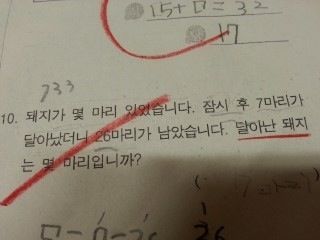 15+□=32
17
733
10. 돼지가 몇 마리 있었습니다. 잠시 후 7마리가
달아났더니 26마리가 남았습니다. 달아난 돼지
는 몇 마리입니까?
26